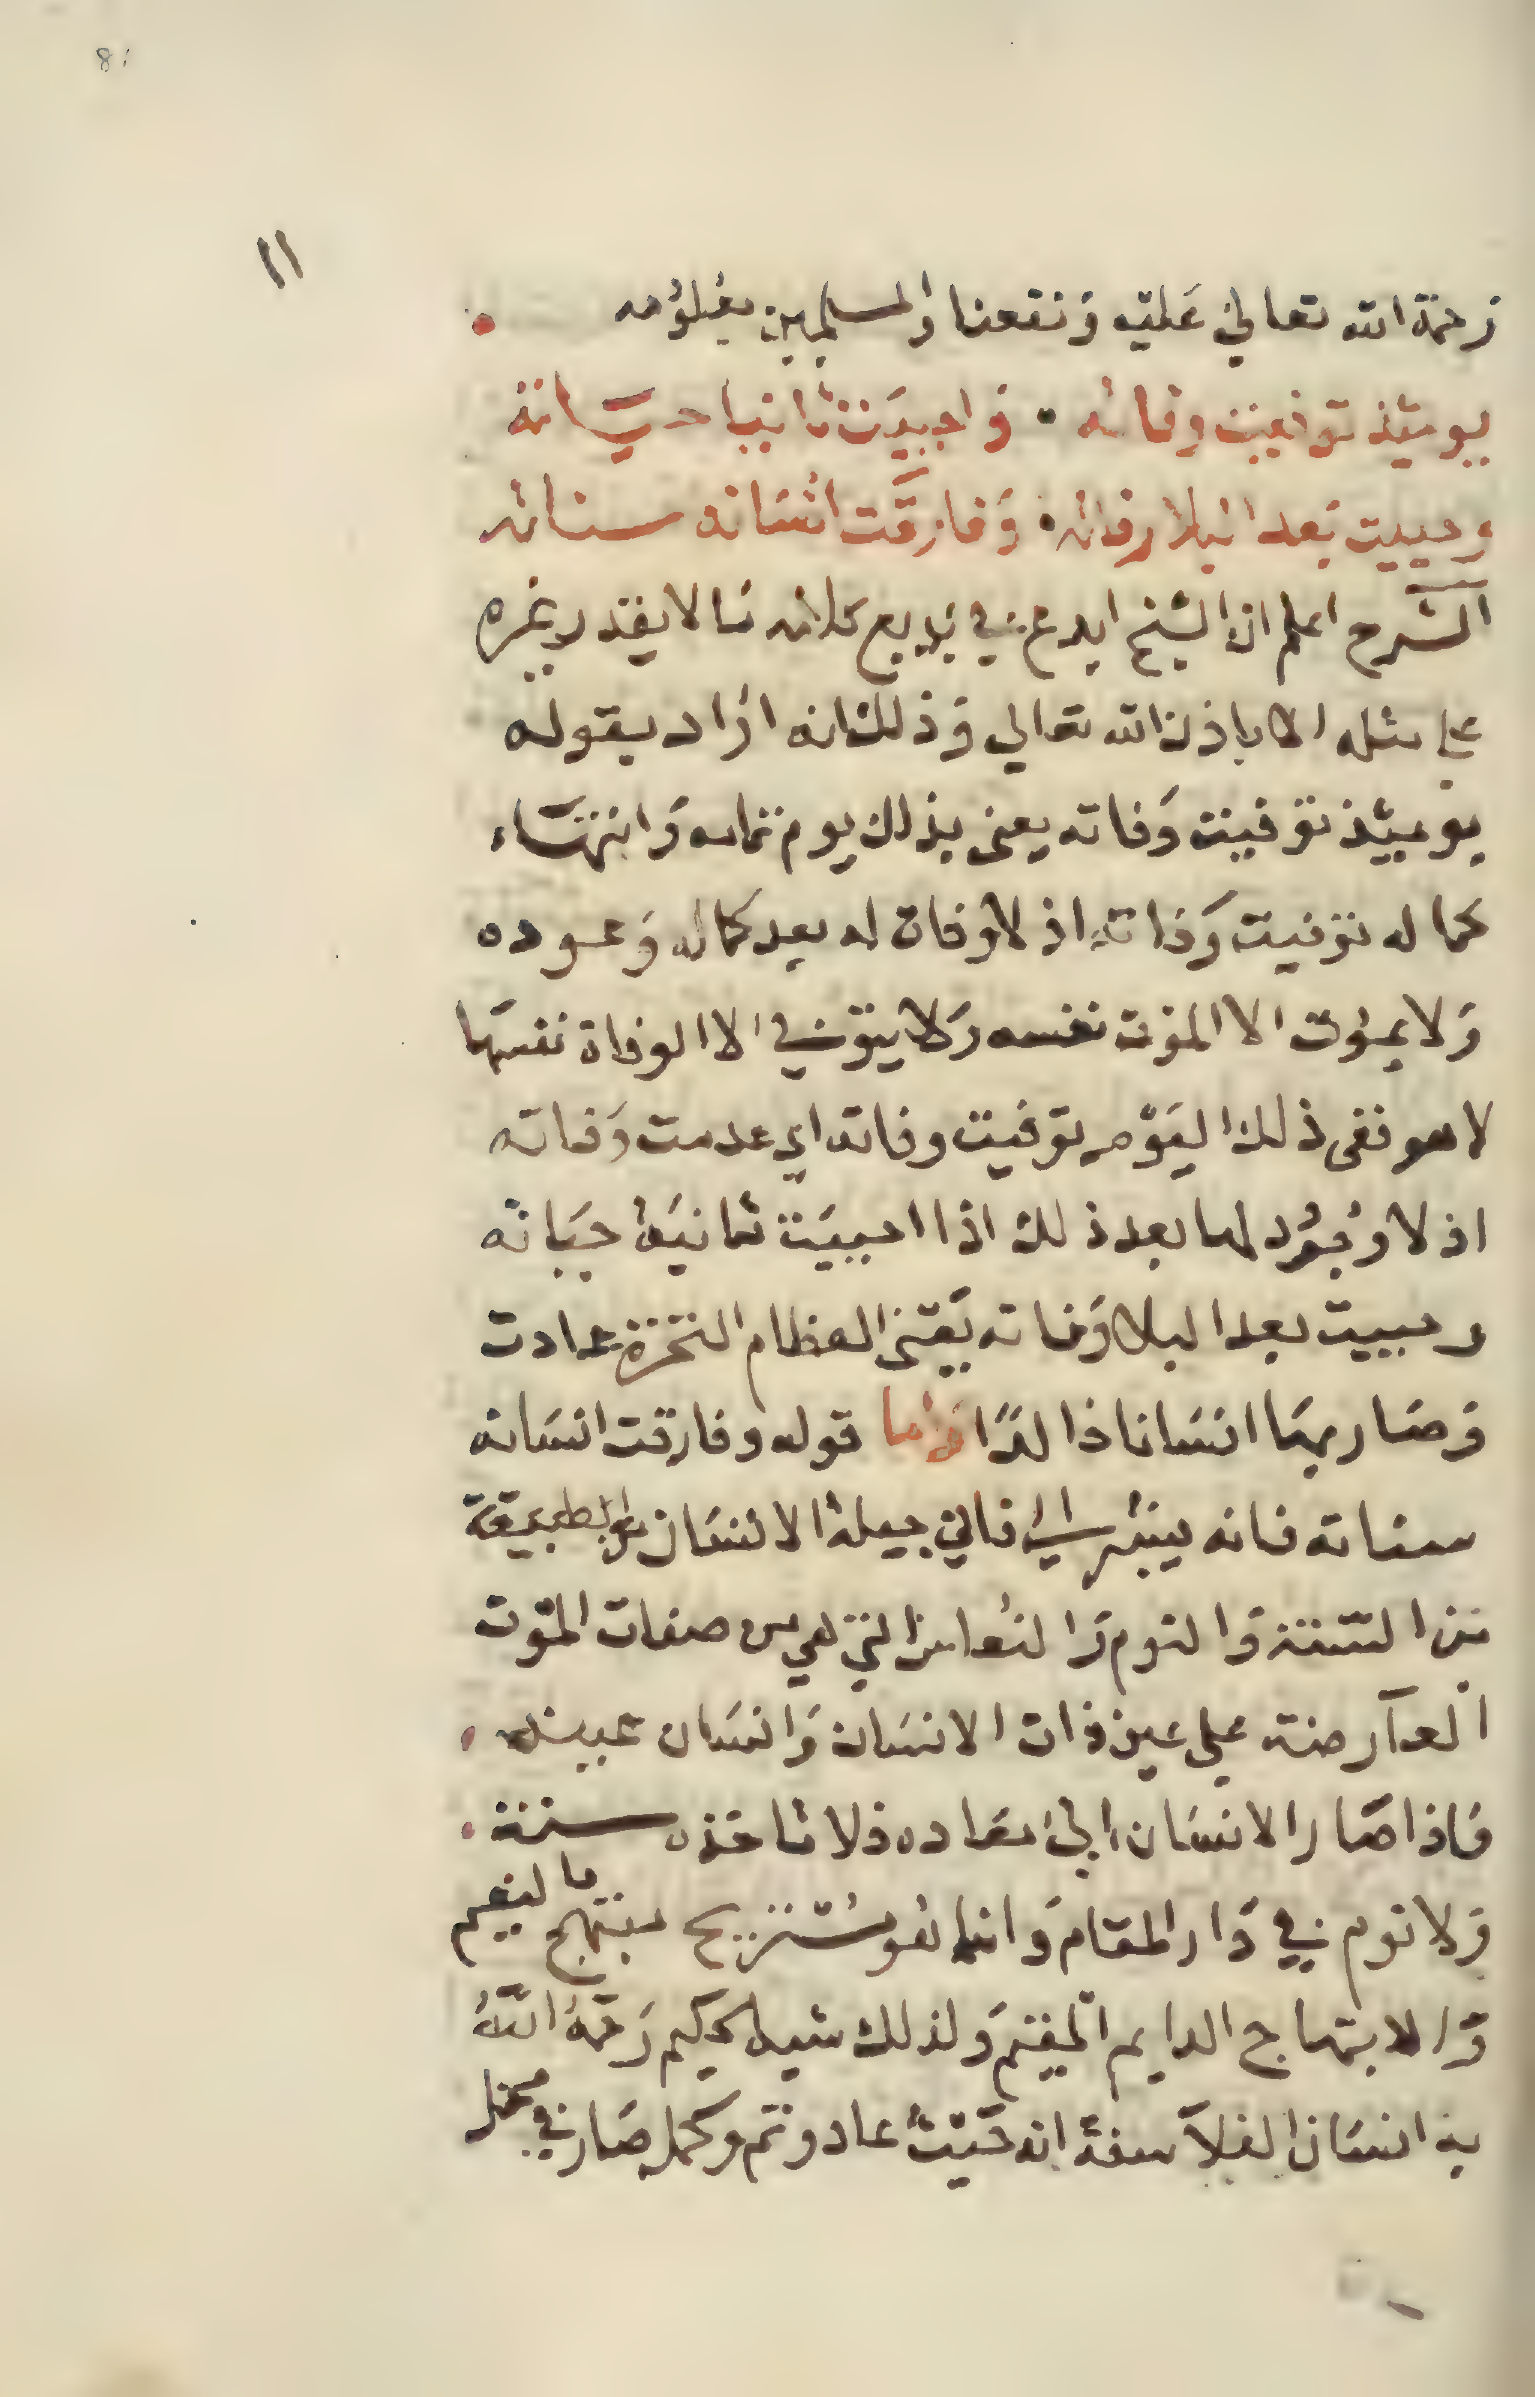 81
١١
رحمة الله تعالي عليه ونفعنا والمسلمين بعلومه
يوميئذ توفيت وفاته • واحييت ثانيا حياته
وحييت بعد البلا رفاته • وفارقت انسانه سناته
الشرح اعلم ان الشيخ ابدع في بديع كلامه ما لا يقدر غيره
علي مثله الا باذن الله تعالي وذلك انه اراد بقوله
يوميئذ توفيت وفاته يعني بذلك يوم تمامه وانتهاء
كماله توفيت وفاته اذ لا وفاة له بعد كماله وعوده
ولا يموت الا الموت نفسه ولا يتوفي الا الوفاة نفسها
لا هو ففي ذلك اليوم توفيت وفاته اي عدمت وفاته
اذ لا وجود لها بعد ذلك اذا احييت ثانية حياته
وحييت بعد البلا وفاته يعني العظام النخرة عادت
وصار بها انسانا خالدا واما قوله وفارقت انسانه
سناته فانه يشير الي ما في جبلة الانسان الطبيعية
من السنة والنوم والنعاس التي هي من صفات الموت
العارضة علي عين ذات الانسان وانسان عينه
فاذا صار الانسان الي معاده فلا تاخذه سنة
ولا نوم في دار المقام وانما هو مستريح مبتهج بالنعيم
والابتهاج الدايم المقيم ولذلك شبه الحكيم رحمه الله
به انسان الفلاسفة انه حيث عاد وتم وكمل صار في محل